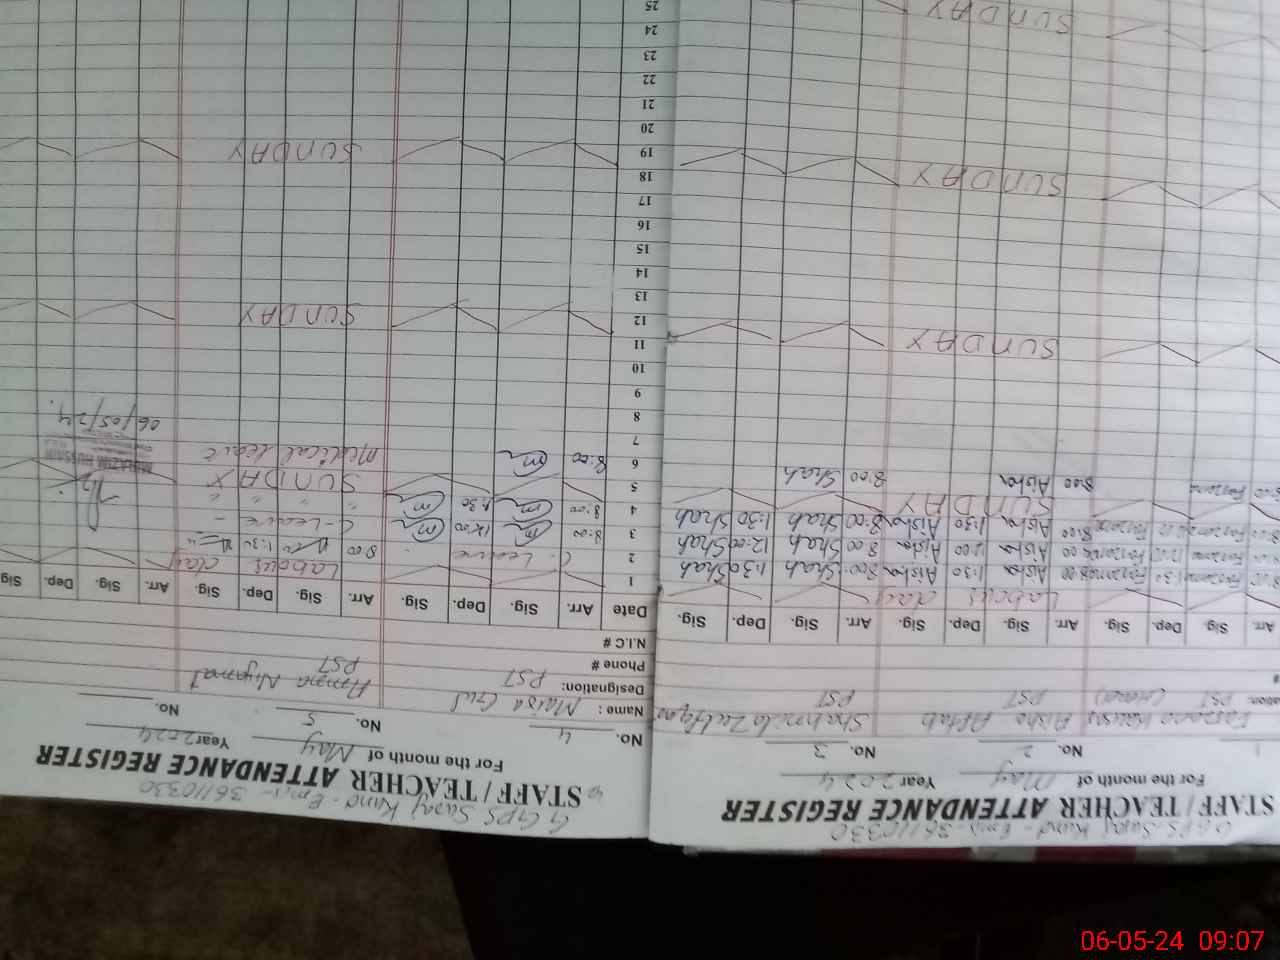 GGPS Suraj Kund - Emis - 36110330
STAFF / TEACHER ATTENDANCE REGISTER
For the month of May Year 2024
No. 2 No. 3
Aisha Aftab Shahmila Zulfiqar
PST PST PST
Arr. Sig. Dep. Sig. Arr. Sig. Dep. Sig. Arr. Sig. Dep. Sig.
Labour day
Farzana 1:30 Farzana 8:00 Aisha 1:30 Aisha 8:00 Shah 1:30 Shah
Farzana Farzana Aisha 12:00 Aisha 8:00 Shah 12:00 Shah
Farzana Farzana 8:00 Aisha 1:30 Aisha 8:00 Shah 1:30 Shah
SUNDAY
Farzana 8:00 Aisha 8:00 Shah
SUNDAY
SUNDAY
SUNDAY
GGPS Suraj Kund - Emis - 36110330
STAFF / TEACHER ATTENDANCE REGISTER
For the month of May Year 2024
No. 4 No. 5 No.
Name: Maisa Gul
Designation: PST PST
Phone #
N.I.C #
Date Arr. Sig. Dep. Sig. Arr. Sig. Dep. Sig. Arr. Sig. Dep. Sig.
1 Labour day
2 C-Leave - 8:00
3 8:00 12:00 C-Leave -
4 8:00 1:30 " "
5 SUNDAY
6 8:00 Medical leave
7
8
9
10
11
12 SUNDAY
13
14
15
16
17
18
19 SUNDAY
20
21
22
23
24
25
06/05/24.
06-05-24 09:07